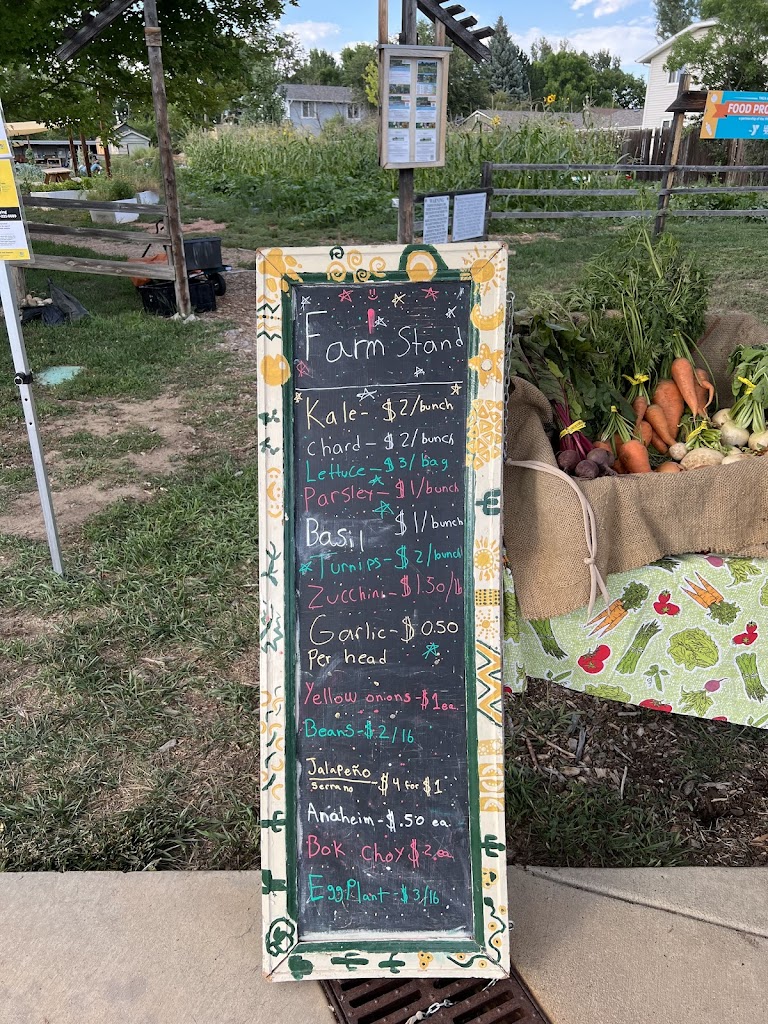 FOOD PRO
Farm Stand
Kale - $2/bunch
Chard - $2/bunch
Lettuce - $3/bag
Parsley - $1/bunch
Basil $1/bunch
Turnips - $2/bunch
Zucchini - $1.50/lb
Garlic - $0.50
Per head
Yellow onions - $1 ea.
Beans - $2/lb
Jalapeño
Serrano - $ 4 for $1
Anaheim - $.50 ea
Bok choy $2 ea
EggPlant - $3/lb